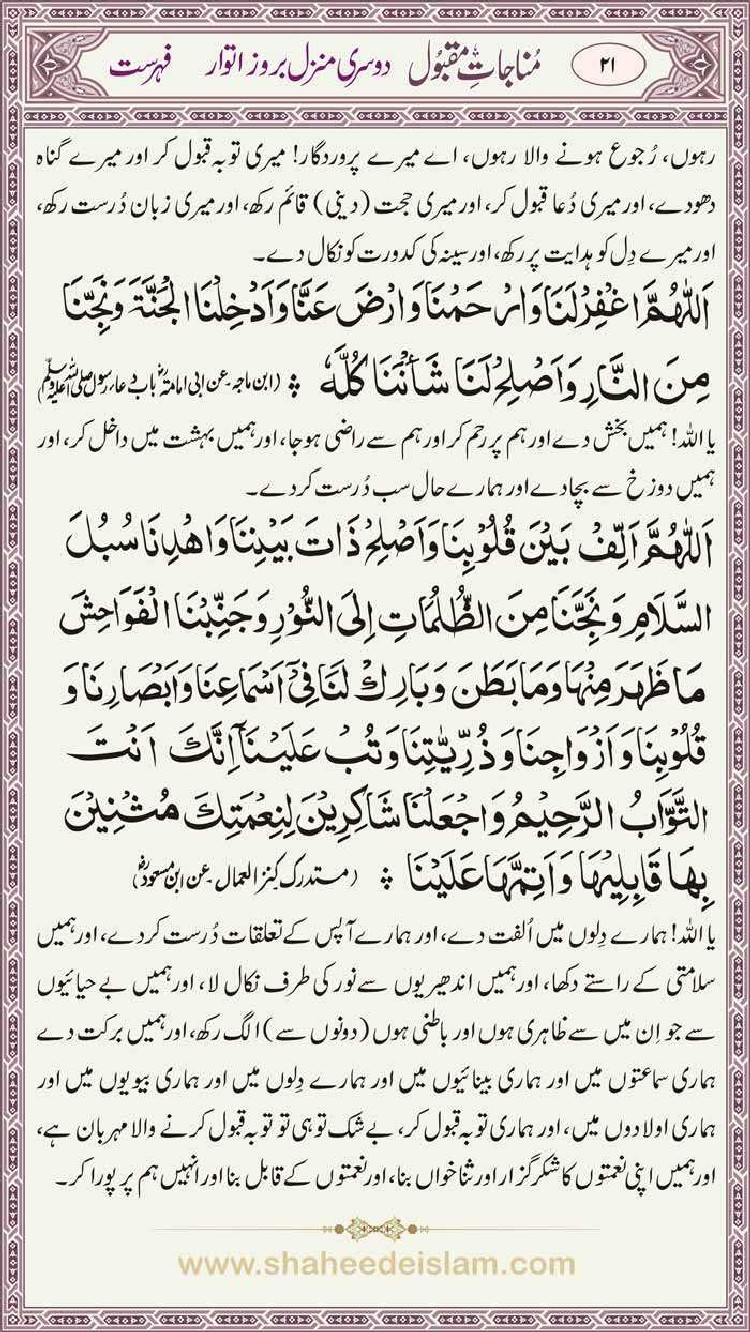 ۲۱ مُناجاتِ مقبُول دوسری منزل بروز اتوار فہرست
رہوں، رُجوع ہونے والا رہوں، اے میرے پروردگار! میری توبہ قبول کر اور میرے گناہ
دھودے، اور میری دُعا قبول کر، اور میری حجت (دینی) قائم رکھ، اور میری زبان دُرست رکھ،
اور میرے دِل کو ہدایت پر رکھ، اور سینہ کی کدورت کو نکال دے۔
اَللّٰهُمَّ اغْفِرْ لَنَا وَارْحَمْنَا وَارْضَ عَنَّا وَاَدْخِلْنَا الْجَنَّةَ وَنَجِّنَا
مِنَ النَّارِ وَاَصْلِحْ لَنَا شَأْنَنَا كُلَّهٗ ۞ (ابن ماجہ۔عن ابی امامۃؓ باب دعاء رسول صلی اللہ علیہ وسلم)
یا اللہ! ہمیں بخش دے اور ہم پر رحم کر اور ہم سے راضی ہوجا، اور ہمیں بہشت میں داخل کر، اور
ہمیں دوزخ سے بچادے اور ہمارے حال سب دُرست کردے۔
اَللّٰهُمَّ اَلِّفْ بَيْنَ قُلُوْبِنَا وَاَصْلِحْ ذَاتَ بَيْنِنَا وَاهْدِنَا سُبُلَ
السَّلَامِ وَنَجِّنَا مِنَ الظُّلُمَاتِ اِلَى النُّوْرِ وَجَنِّبْنَا الْفَوَاحِشَ
مَا ظَهَرَ مِنْهَا وَمَا بَطَنَ وَبَارِكْ لَنَا فِيْٓ اَسْمَاعِنَا وَاَبْصَارِنَا وَ
قُلُوْبِنَا وَاَزْوَاجِنَا وَذُرِّيّٰتِنَا وَتُبْ عَلَيْنَآ اِنَّكَ اَنْتَ
التَّوَّابُ الرَّحِيْمُ وَاجْعَلْنَا شَاكِرِيْنَ لِنِعْمَتِكَ مُثْنِيْنَ
بِهَا قَابِلِيْهَا وَاَتِمَّهَا عَلَيْنَا ۞ (مستدرک کنز العمال۔عن ابن مسعودؓ)
یا اللہ! ہمارے دِلوں میں اُلفت دے، اور ہمارے آپس کے تعلقات دُرست کردے، اور ہمیں
سلامتی کے راستے دکھا، اور ہمیں اندھیریوں سے نور کی طرف نکال لا، اور ہمیں بے حیائیوں
سے جو اِن میں سے ظاہری ہوں اور باطنی ہوں (دونوں سے) الگ رکھ، اور ہمیں برکت دے
ہماری سماعتوں میں اور ہماری بینائیوں میں اور ہمارے دِلوں میں اور ہماری بیویوں میں اور
ہماری اولادوں میں، اور ہماری توبہ قبول کر، بے شک تو ہی تو توبہ قبول کرنے والا مہربان ہے،
اور ہمیں اپنی نعمتوں کا شکر گزار اور ثنا خواں بنا، اور نعمتوں کے قابل بنا اور انہیں ہم پر پورا کر۔
www.shaheedeislam.com